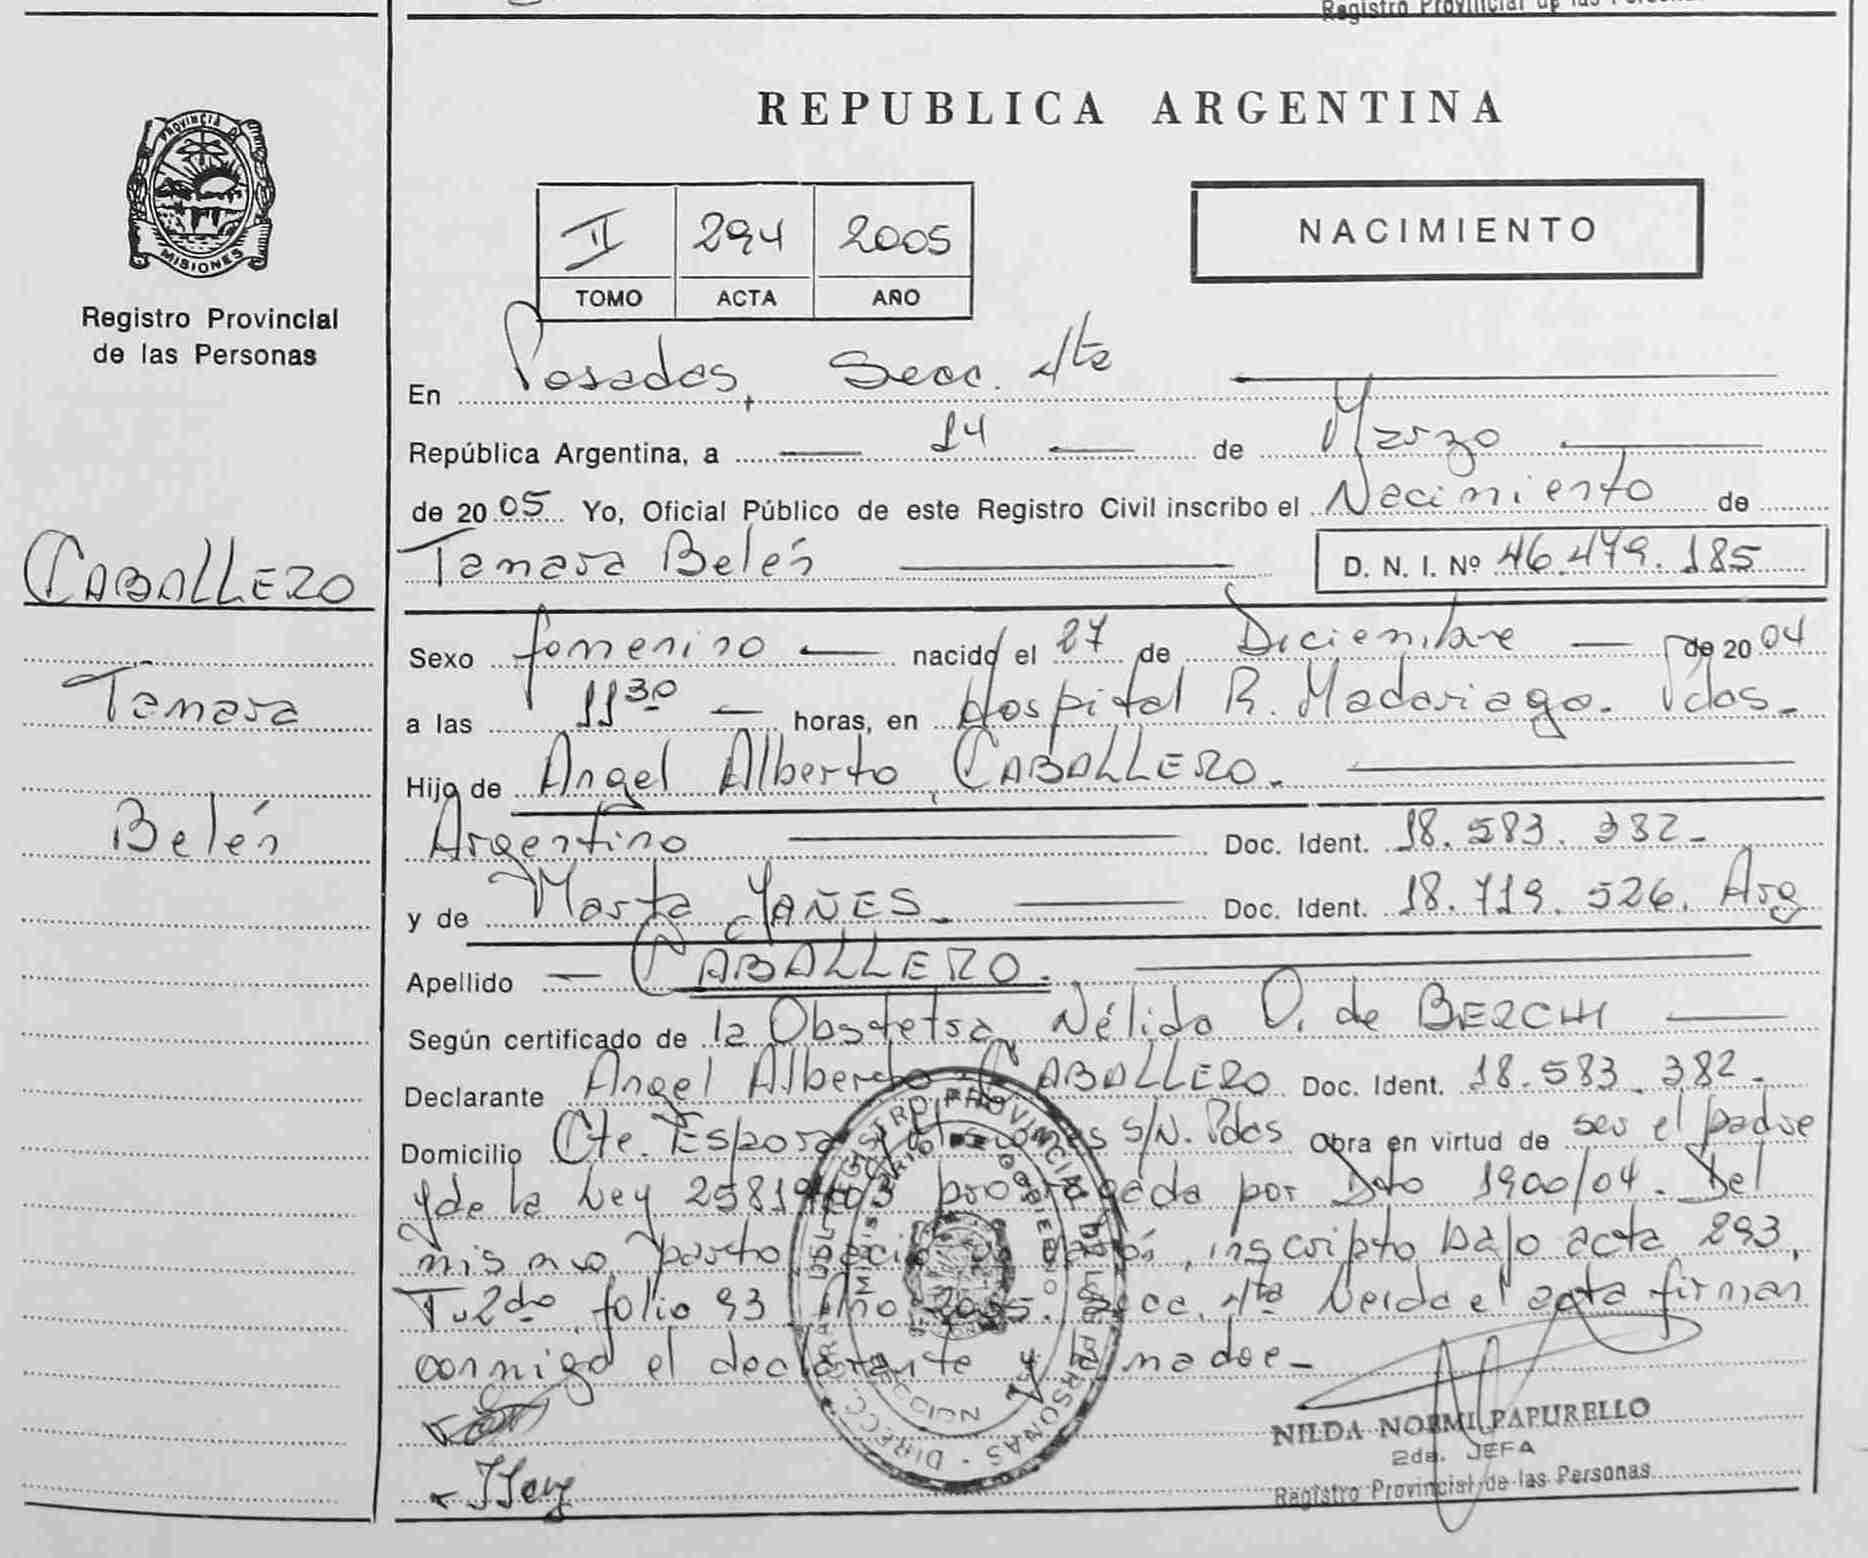 Registro Provincial de las Personas
REPUBLICA ARGENTINA
PROVINCIA DE
MISIONES
Registro Provincial
de las Personas
II 294 2005
TOMO ACTA AÑO
NACIMIENTO
En Posadas, Secc. 4ta
República Argentina, a 14 de Marzo
de 2005 Yo, Oficial Público de este Registro Civil inscribo el Nacimiento de
CABALLERO
Tamara Belén D. N. I. Nº 46.479.185
Sexo femenino nacido el 27 de Diciembre de 2004
Tamara
a las 11 30 horas, en Hospital R. Madariaga. Pdas.
Hijo de Angel Alberto CABALLERO.
Belén
Argentino Doc. Ident. 18.583.382-
y de Marta YAÑES. Doc. Ident. 18.719.526. Arg
Apellido CABALLERO.
Según certificado de la Obstetra Nélida O. de BERCHI
Declarante Angel Alberto CABALLERO Doc. Ident. 18.583.382-
Domicilio Cte. Espora y s/N. Pdas Obra en virtud de ser el padre
y de la Ley 25819/03 prorrogada por Dto 1900/04. Del
mismo parto nació un varón, inscripto bajo acta 293,
T. 2do folio 93 Año 2005. Secc. 4ta Leida el acta firman
conmigo el declarante y la madre-
REGISTRO PROVINCIAL DE LAS PERSONAS
MINISTERIO DE GOBIERNO
NILDA NOEMI PAPURELLO
2da. JEFA
Registro Provincial de las Personas